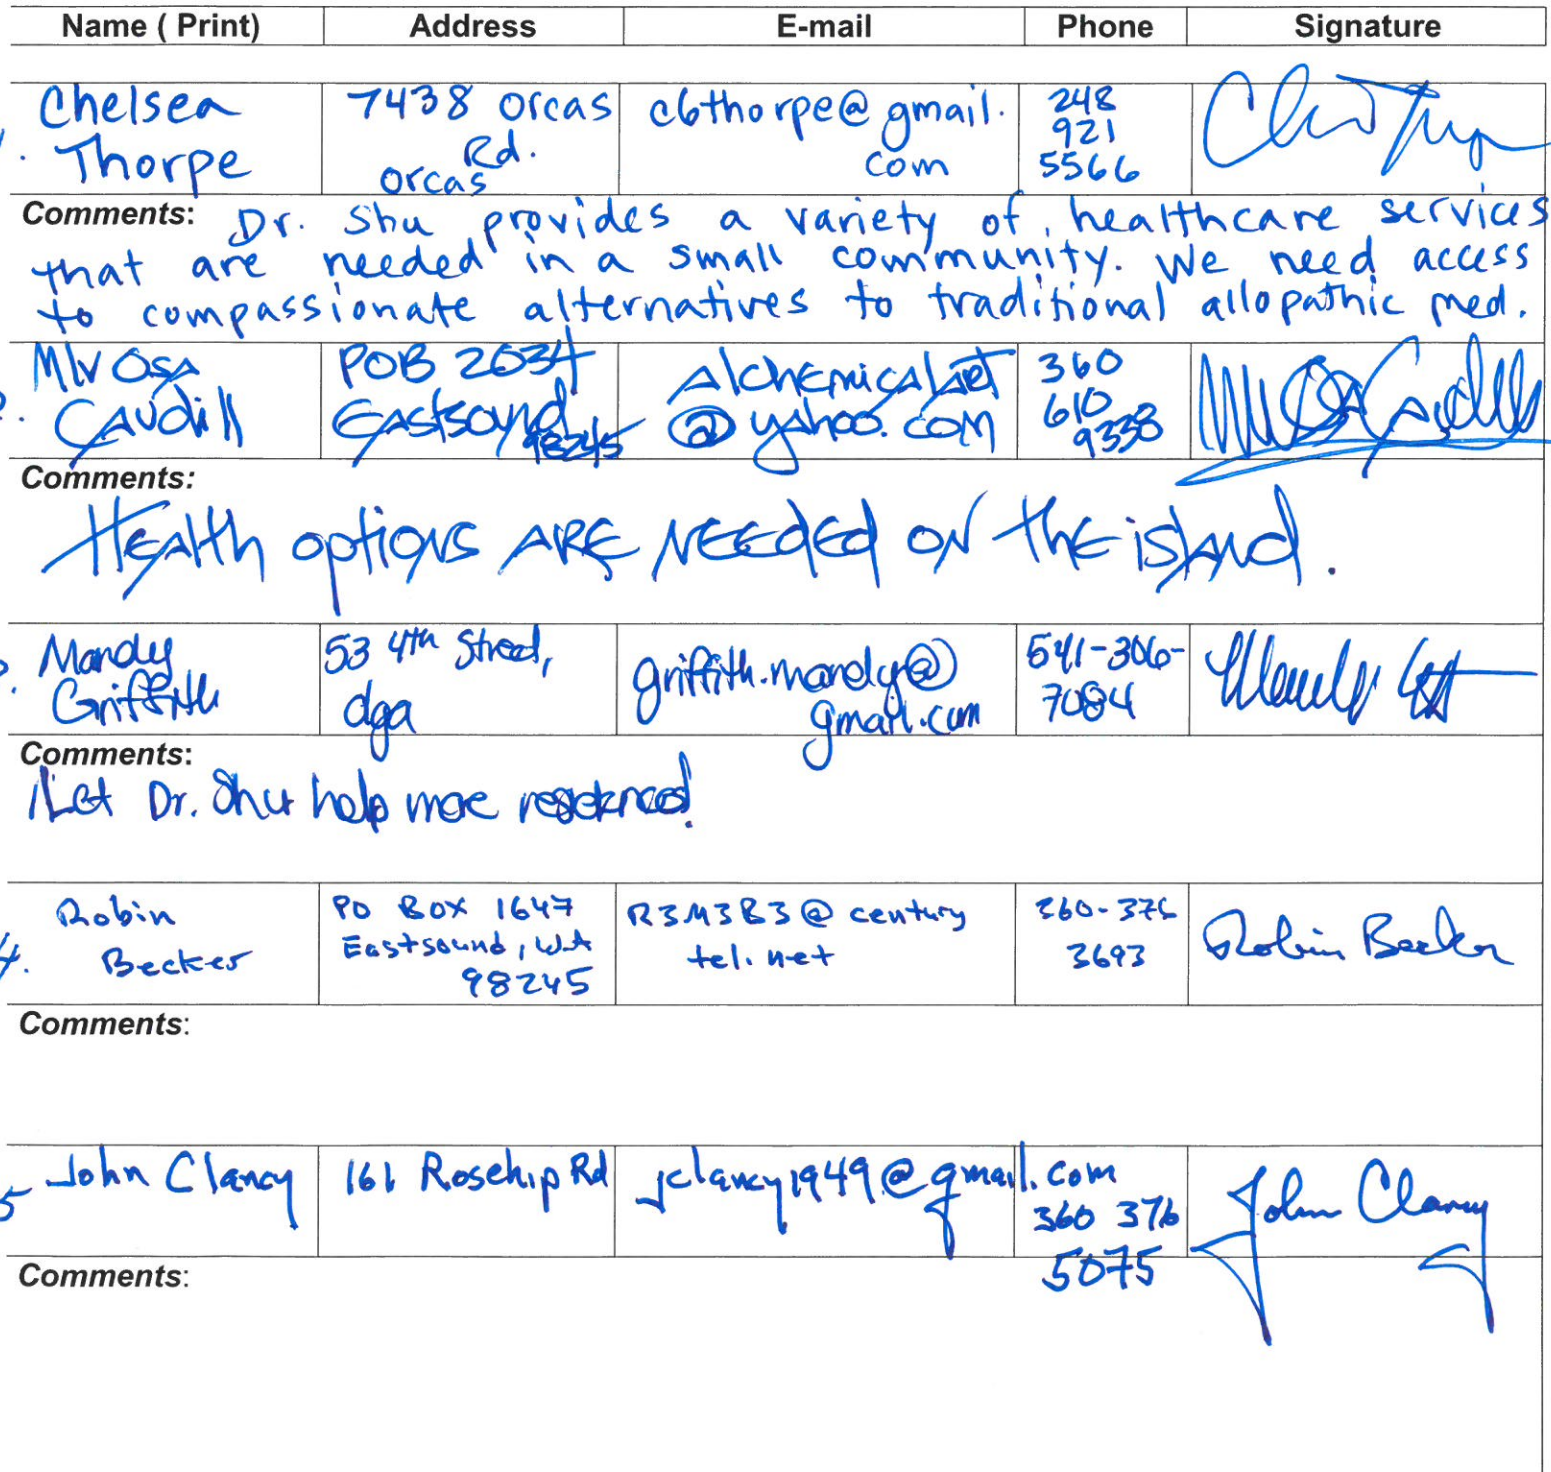 Name ( Print) Address E-mail Phone Signature
Chelsea Thorpe 7438 Orcas Rd. Orcas c6thorpe@gmail.com 248 921 5566
Comments: Dr. Shu provides a variety of healthcare services
that are needed in a small community. We need access
to compassionate alternatives to traditional allopathic med.
Osa Caudill POB 2634 Eastsound 98245 @yahoo.com 360 610 9338
Comments:
Health options ARE NEEDED ON the island.
Mandy Griffith 53 4th Street, griffith.mandy@gmail.com 541-306-7084
Comments:
Let Dr. Shu help more
4. Robin Becker PO BOX 1647 Eastsound, WA 98245 R3M3B3@centurytel.net 360-376 3693 Robin Becker
Comments:
5 John Clancy 161 Rosehip Rd jclancy1949@gmail.com 360 376 5075 John Clancy
Comments: